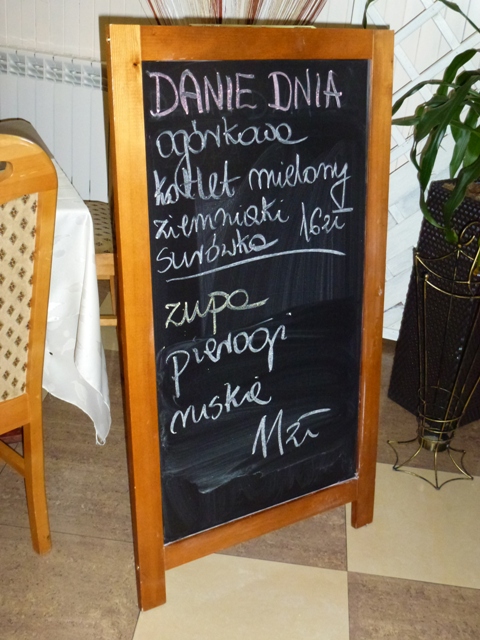 DANIE DNIA
ogórkowa
kotlet mielony
ziemniaki 16zł
surówka
zupa
pierogi
ruskie
11zł